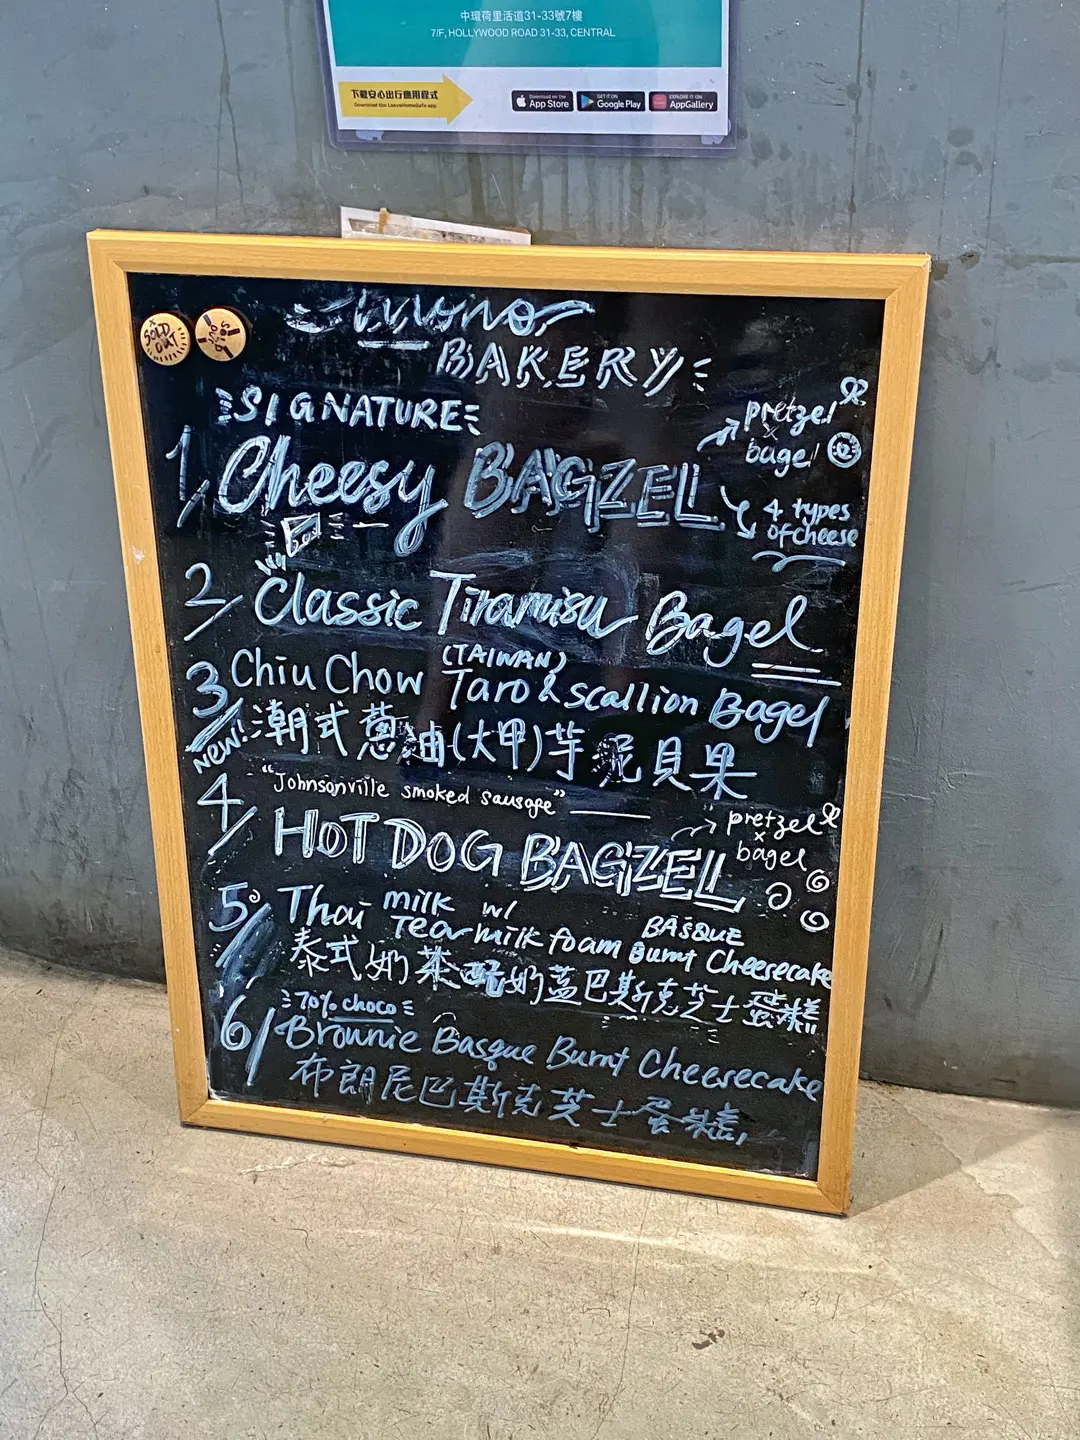 中環荷里活道31-33號7樓
7/F, HOLLYWOOD ROAD 31-33, CENTRAL
下載安心出行應用程式
Download the LeaveHomeSafe app
Download on the App Store
GET IT ON Google Play
EXPLORE IT ON AppGallery
SOLD OUT
SOLD OUT
BAKERY
SIGNATURE
pretzel
x
bagel
1/ Cheesy BAGZEL
4 types
of cheese
2/ Classic Tiramisu Bagel
3/ Chiu Chow (TAIWAN) Taro & scallion Bagel
NEW! 潮式蔥油(大甲)芋泥貝果
4/ "Johnsonville smoked sausage"
HOT DOG BAGZEL
pretzel
x
bagel
5/ Thai milk Tea w/ milk foam BASQUE Burnt Cheesecake
泰式奶茶醋奶蓋巴斯克芝士蛋糕
70% choco
6/ Brownie Basque Burnt Cheesecake
布朗尼巴斯克芝士蛋糕